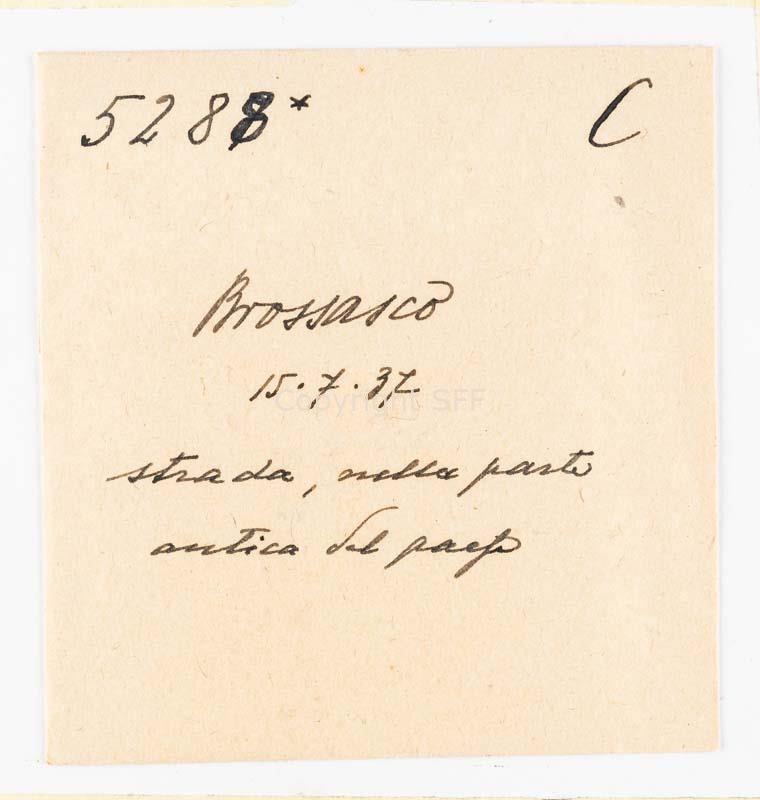 5288* C
Brossasco
15.7.37.
Copyright SFF
strada, nella parte
antica del paese